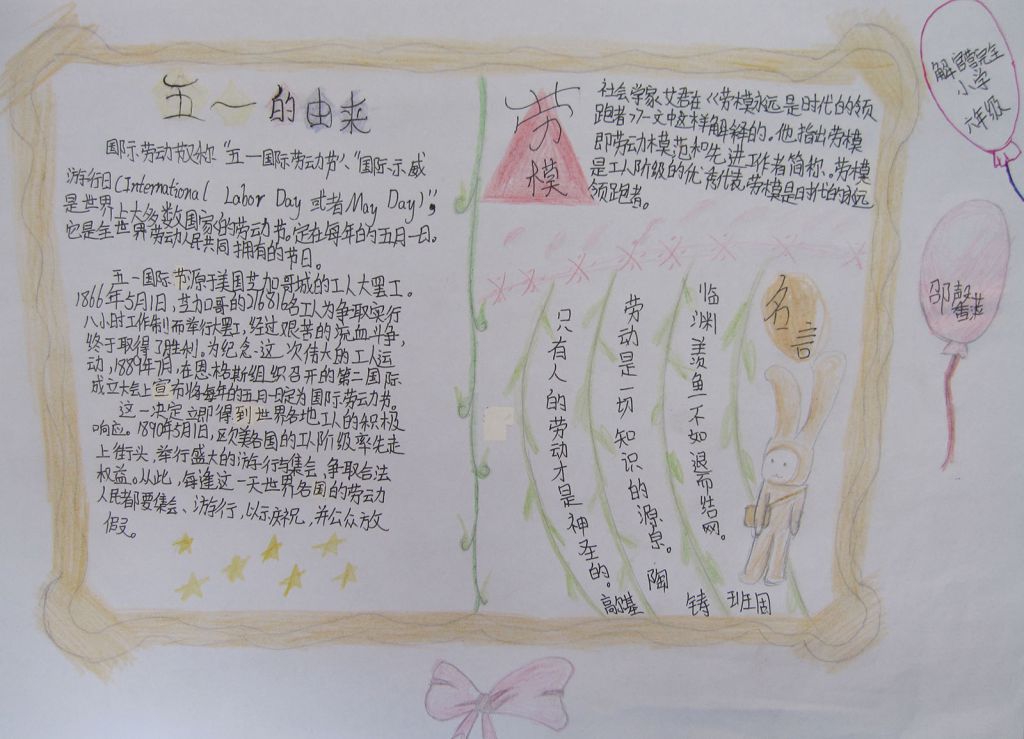 五一的由来
国际劳动节又称“五一国际劳动节”、“国际示威
游行日(International Labor Day 或者May Day)”;
是世界上大多数国家的劳动节。定在每年的五月一日。
它是全世界劳动人民共同拥有的节日。
五一国际节源于美国芝加哥城的工人大罢工。
1866年5月1日,芝加哥的216816名工人为争取实行
八小时工作制而举行大罢工,经过艰苦的流血斗争,
终于取得了胜利。为纪念这次伟大的工人运
动,1889年7月,在恩格斯组织召开的第二国际
成立大会上宣布将每年的五月一日定为国际劳动节。
这一决定立即得到世界各地工人的积极
响应。1890年5月1日,欧美各国的工人阶级率先走
上街头,举行盛大的游行与集会,争取合法
权益。从此,每逢这一天世界各国的劳动
人民都要集会、游行,以示庆祝,并公众放
假。
劳模
社会学家艾君在《劳模永远是时代的领
跑者》一文中这样解释的。他指出劳模
即劳动模范和先进工作者简称。劳模
是工人阶级的优秀代表,劳模是时代的永远
领跑者。
名言
临渊羡鱼不如退而结网。
班固
劳动是一切知识的源泉。
陶铸
只有人的劳动才是神圣的。
高尔基
解官营完全
小学
六年级
邵馨